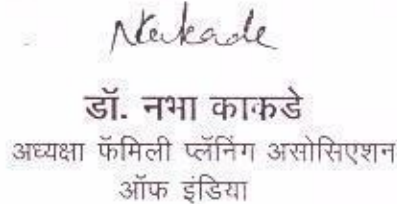 Nkakade
डॉ. नभा काकडे
अध्यक्षा फॅमिली प्लॅनिंग असोसिएशन
ऑफ इंडिया